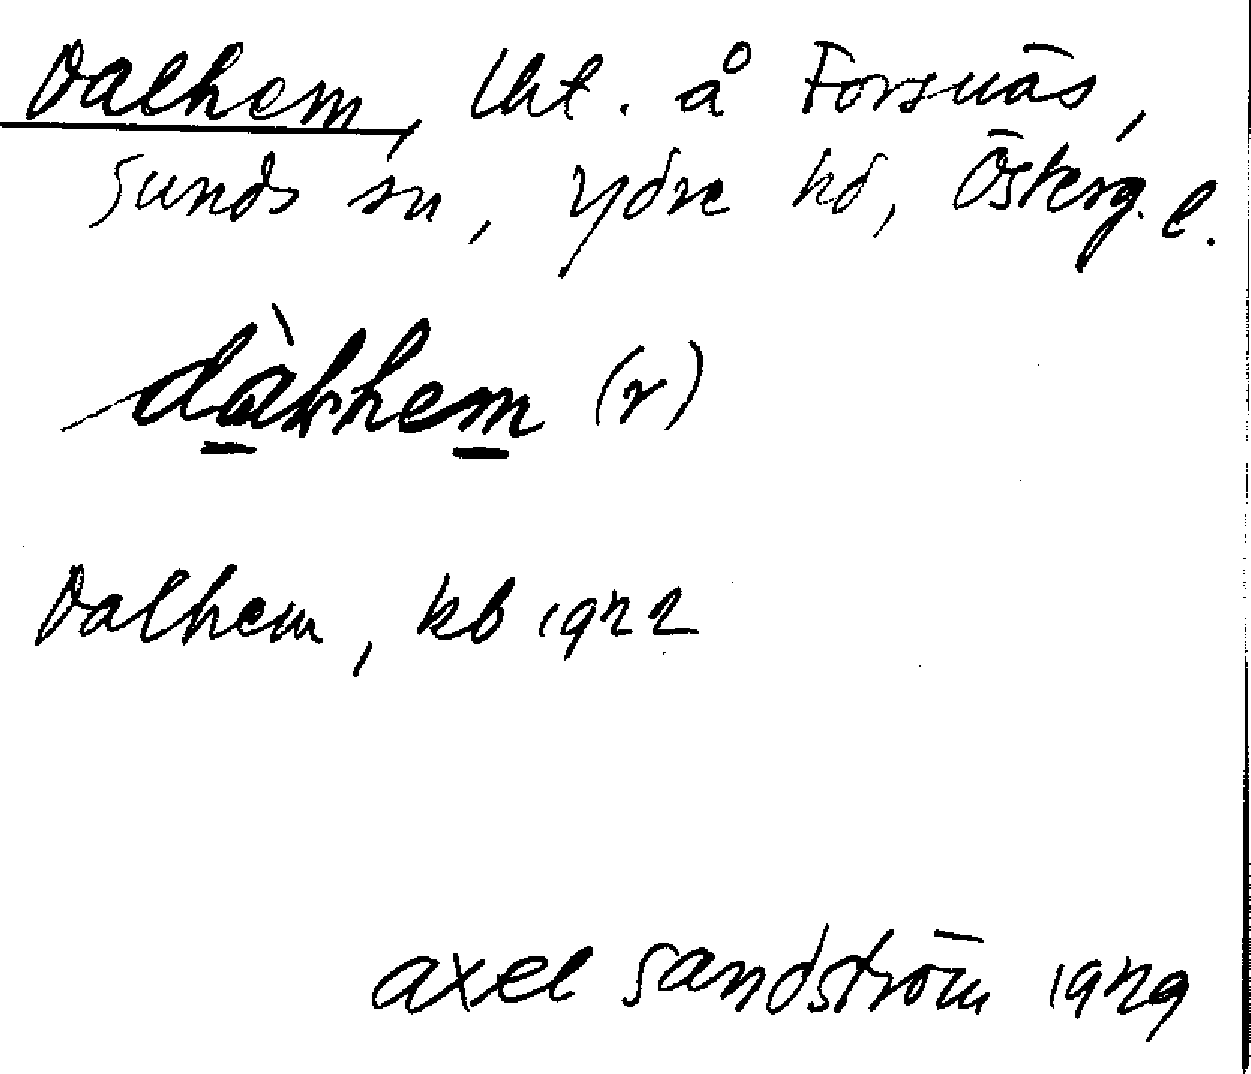 Dalhem, lht. å Forsnäs,
Sunds sn, Ydre hd, Österg. l.
dàlhem (r)
Dalhem, kb 1922
Axel Sandström 1929